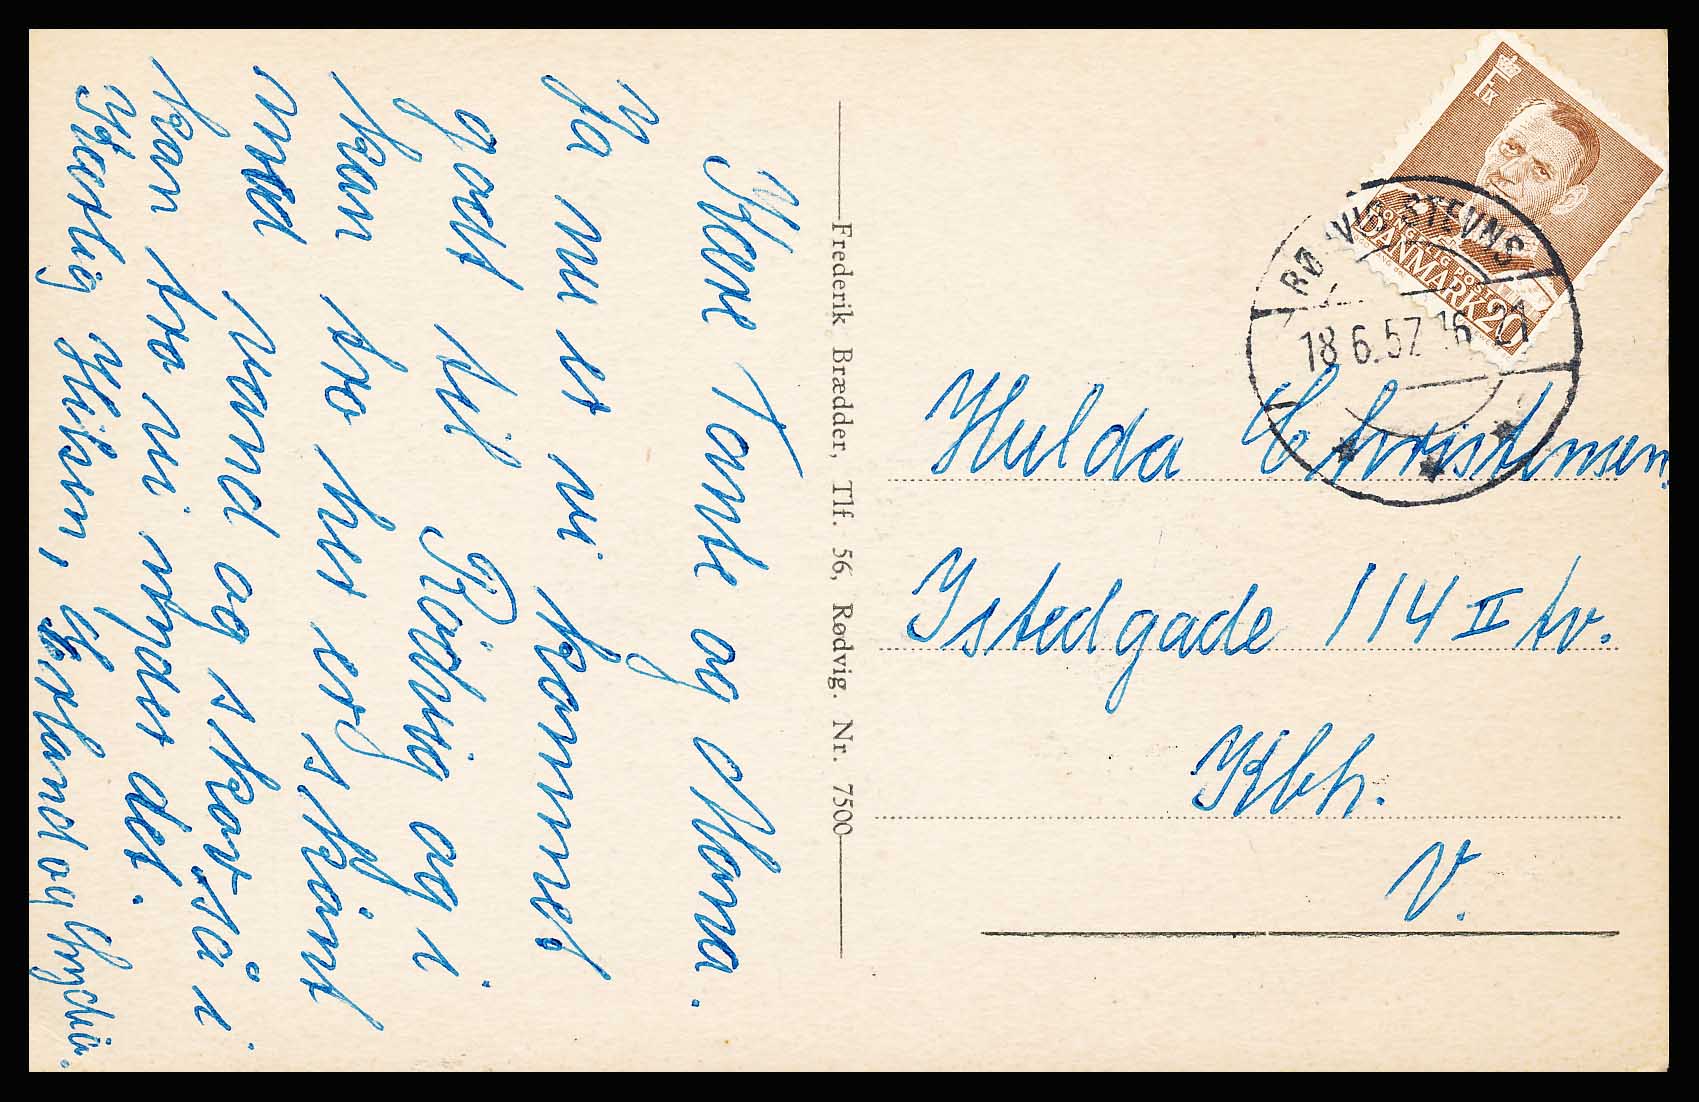 Kære Tante og Mona.
Ja nu er vi kommet
godt til Rödvig og i
kan tro her er skönt
med vand og skov så i
kan tro vi nyder det.
Kærlig Hilsen,
Frederik Brædder, Tlf. 56, Rødvig. Nr. 7500
F IX
DANMARK 20
STEVNS
18.6.57 16
Hulda Christensen
Istedgade 114 II tv.
Kbh.
V.